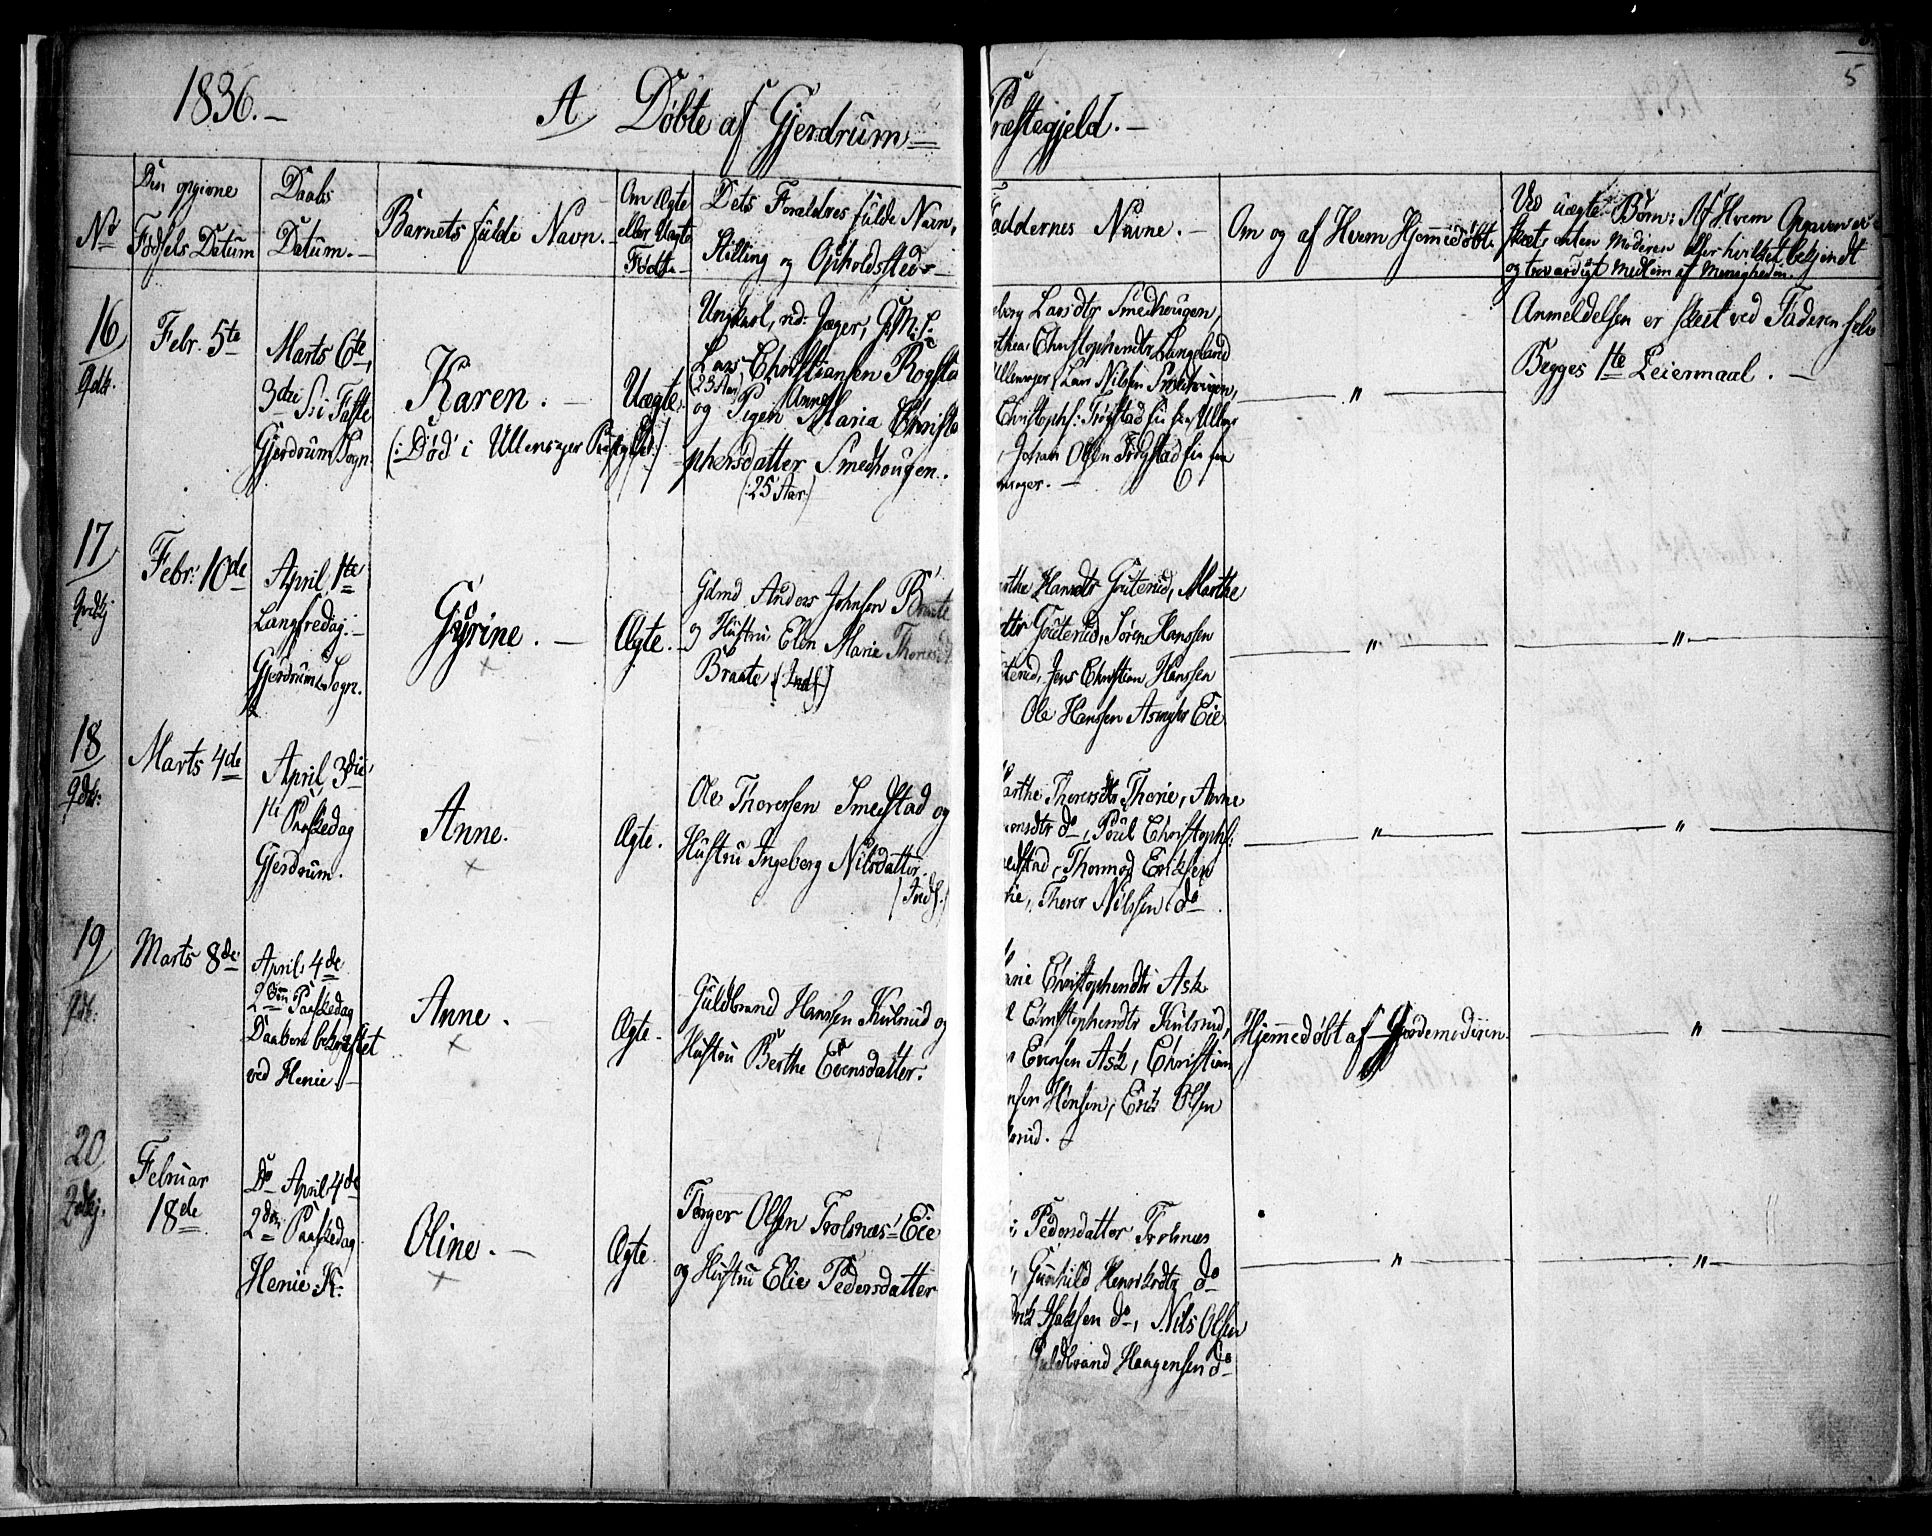 1836.—
A Døbte af Gjerdrum=
Præstegjeld.—
5
No
Den opgivne
Fødsels Datum
Daabs
Datum.—
Barnets fulde Navn.—
Om Ægte
eller Uægte
Født.—
Dets Forældres fulde Navn,
Stilling og Opholdsted.—
Faddernes Navne.—
Om og af Hvem Hjemmedøbt.
Ved uægte Børn: Af Hvem
skeet, enten Moderen eller hvilket bekjendt
og troværdigt Medlem af Menigheden.
16
Febr. 5te
Marts 6te,
3die S: i Faste
Gjerdrum Sogn.
Karen.—
(: Død i Ullensager Præstegjeld :)
Uægte.
Ungkarl, rid: Jæger,
Lars Christiansen Rogsta
(23 Aar)
og Pigen Anne Maria Christo
phersdatter Smedhougen.
(: 25 Aar)
eborg Larsdtr Smedhougen,
othea Christophersdtr Langeland
Ullensager, Lars Nilsen Smedhougen,
Christophs: Frøgstad
Johan Olsen Frogstad
ensager.—
"
Anmeldelsen er skeet ved Faderen selv
Begges 1te Leiermaal.—
17
Febr: 10de
April 1te
Langfredag.—
Gjerdrum Sogn.
Gurine.—
Ægte.
Gdmd Anders Johnsen Braate
og Hustru Elen Marie Thores
Braate (Inds)
rthe Hansdtr Gouterud, Marthe
dtr Gouterud, Søren Hanssen
uterud, Jens Christian Hanssen
Ole Hanssen Asmyhr Eie
"
"
18
Marts 4de
April 3die
1te Paaskedag
Gjerdrum.
Anne.
Ægte.
Ole Thorersen Smedstad og
Hustru Ingeborg Nilsdatter.
(Inds.)
Marthe Thorersdtr Thorie, Anne
do, Poul Christophs:
medstad, Thormod Eriksen
rie, Thorer Nilssen do
"
"
19
Marts 8de
April 4de
2den Paaskedag
Daaben bekræftet
ved Henie.—
Anne.
Ægte.
Guldbrand Hanssen Kulsrud og
Hustru Berthe Evensdatter.
Marie Christophersdtr Ask
Christophersdtr Kulsrud,
Evensen Ask, Christian
Hansen, Erik Olsen
srud.
Hjemmedøbt af Jordemoderen
"
20
Februar
18de
Do April 4de
2den Paaskedag
Henie K:
Oline.—
Ægte.
Torger Olsen Frolsnæs=Eie
og Hustru Elie Pedersdatter
Pedersdatter Frolsnæs
Gunhild Henriksdtr do
drik Isaksen do, Nils Olsen
Guldbrand Haagensen do
"
"